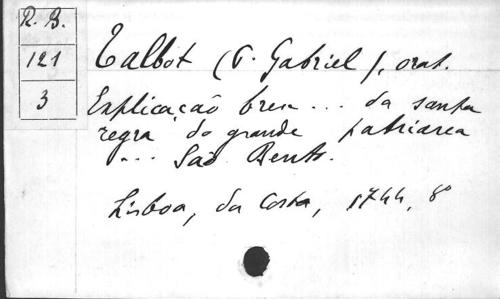 R. B.
121
3
Talbot (P. Gabriel), orat.
Explicação breve ... da santa
regra do grande patriarca
... São Bento.
Lisboa, da Costa, 1744, 8º